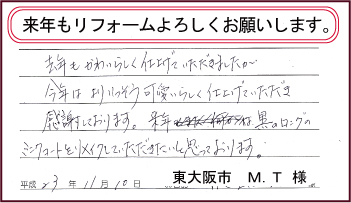 来年もリフォームよろしくお願いします。
去年もかわいらしく仕上げていただきましたが
今年はよりいっそう可愛いらしく仕上げていただき
感謝しております。来年 黒のロングの
ミンクコートをリメイクしていただきたいと思っております。
平成 23年 11月 10日
東大阪市 M.T 様